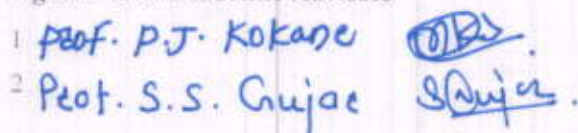 1 Prof. P.J. Kokane
2 Prof. S.S. Gujar SGujar